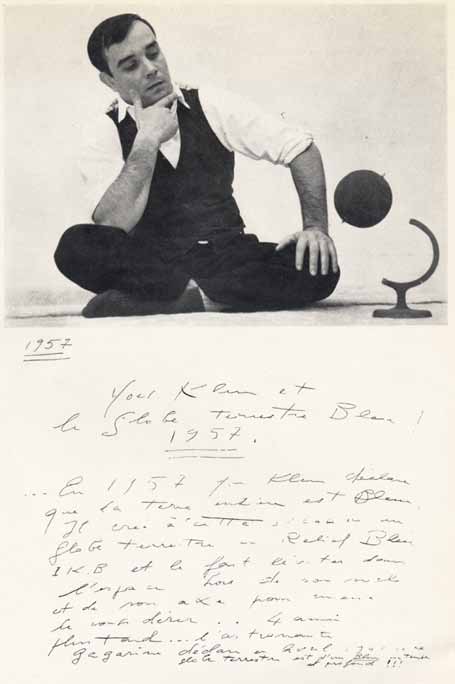 1957
Yves Klein et
le Globe terrestre Bleu !
1957.
... En 1957 Y- Klein déclare
que la terre entière est Bleue.
Il crée à cette occasion un
globe terrestre en Relief Bleu
IKB et le fait léviter dans
l'espace hors de son socle
et de son axe pour
le .. 4 ans
plus tard... l'astronaute
Gagarine déclare en Avril
globe terrestre est d'un bleu intense
et profond !!!